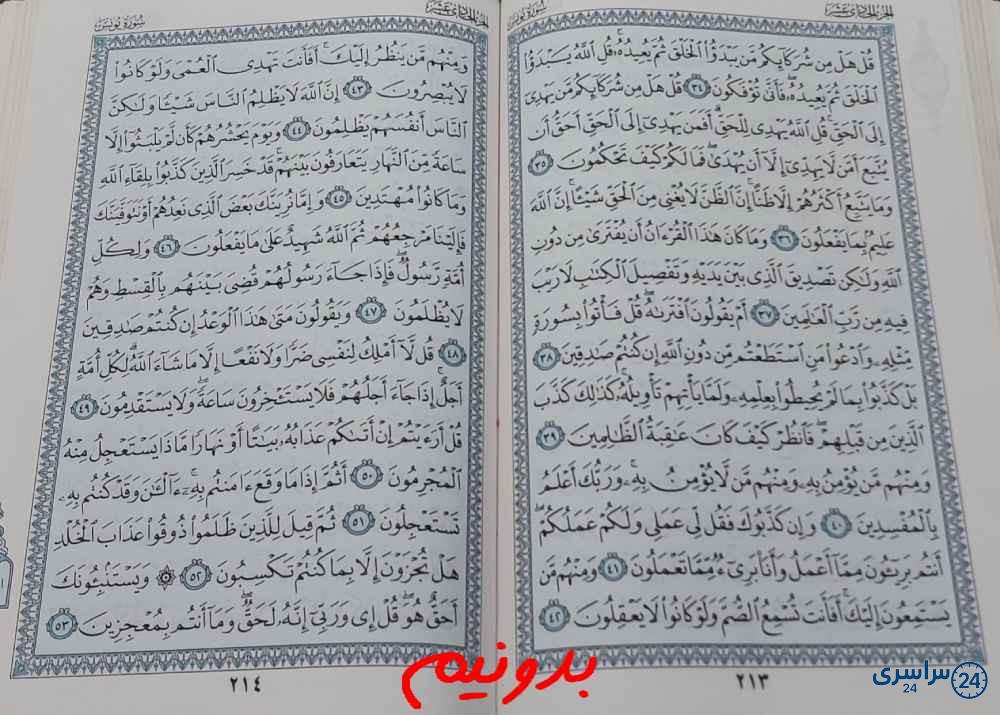 الجزء الحادي عشر
سورة يونس
قُلْ هَلْ مِن شُرَكَآئِكُم مَّن يَبْدَؤُا۟ ٱلْخَلْقَ ثُمَّ يُعِيدُهُۥ ۚ قُلِ ٱللَّهُ يَبْدَؤُا۟
ٱلْخَلْقَ ثُمَّ يُعِيدُهُۥ ۖ فَأَنَّىٰ تُؤْفَكُونَ ٣٤ قُلْ هَلْ مِن شُرَكَآئِكُم مَّن يَهْدِىٓ
إِلَى ٱلْحَقِّ ۚ قُلِ ٱللَّهُ يَهْدِى لِلْحَقِّ ۗ أَفَمَن يَهْدِىٓ إِلَى ٱلْحَقِّ أَحَقُّ أَن
يُتَّبَعَ أَمَّن لَّا يَهِدِّىٓ إِلَّآ أَن يُهْدَىٰ ۖ فَمَا لَكُمْ كَيْفَ تَحْكُمُونَ ٣٥
وَمَا يَتَّبِعُ أَكْثَرُهُمْ إِلَّا ظَنًّا ۚ إِنَّ ٱلظَّنَّ لَا يُغْنِى مِنَ ٱلْحَقِّ شَيْـًٔا ۚ إِنَّ ٱللَّهَ
عَلِيمٌۢ بِمَا يَفْعَلُونَ ٣٦ وَمَا كَانَ هَٰذَا ٱلْقُرْءَانُ أَن يُفْتَرَىٰ مِن دُونِ
ٱللَّهِ وَلَٰكِن تَصْدِيقَ ٱلَّذِى بَيْنَ يَدَيْهِ وَتَفْصِيلَ ٱلْكِتَٰبِ لَا رَيْبَ
فِيهِ مِن رَّبِّ ٱلْعَٰلَمِينَ ٣٧ أَمْ يَقُولُونَ ٱفْتَرَىٰهُ ۖ قُلْ فَأْتُوا۟ بِسُورَةٍ
مِّثْلِهِۦ وَٱدْعُوا۟ مَنِ ٱسْتَطَعْتُم مِّن دُونِ ٱللَّهِ إِن كُنتُمْ صَٰدِقِينَ ٣٨
بَلْ كَذَّبُوا۟ بِمَا لَمْ يُحِيطُوا۟ بِعِلْمِهِۦ وَلَمَّا يَأْتِهِمْ تَأْوِيلُهُۥ ۚ كَذَٰلِكَ كَذَّبَ
ٱلَّذِينَ مِن قَبْلِهِمْ ۖ فَٱنظُرْ كَيْفَ كَانَ عَٰقِبَةُ ٱلظَّٰلِمِينَ ٣٩
وَمِنْهُم مَّن يُؤْمِنُ بِهِۦ وَمِنْهُم مَّن لَّا يُؤْمِنُ بِهِۦ ۚ وَرَبُّكَ أَعْلَمُ
بِٱلْمُفْسِدِينَ ٤٠ وَإِن كَذَّبُوكَ فَقُل لِّى عَمَلِى وَلَكُمْ عَمَلُكُمْ ۖ
أَنتُم بَرِيٓـُٔونَ مِمَّآ أَعْمَلُ وَأَنَا۠ بَرِىٓءٌ مِّمَّا تَعْمَلُونَ ٤١ وَمِنْهُم مَّن
يَسْتَمِعُونَ إِلَيْكَ ۚ أَفَأَنتَ تُسْمِعُ ٱلصُّمَّ وَلَوْ كَانُوا۟ لَا يَعْقِلُونَ ٤٢
٢١٣
الجزء الحادي عشر
سورة يونس
وَمِنْهُم مَّن يَنظُرُ إِلَيْكَ ۚ أَفَأَنتَ تَهْدِى ٱلْعُمْىَ وَلَوْ كَانُوا۟
لَا يُبْصِرُونَ ٤٣ إِنَّ ٱللَّهَ لَا يَظْلِمُ ٱلنَّاسَ شَيْـًٔا وَلَٰكِنَّ
ٱلنَّاسَ أَنفُسَهُمْ يَظْلِمُونَ ٤٤ وَيَوْمَ يَحْشُرُهُمْ كَأَن لَّمْ يَلْبَثُوٓا۟ إِلَّا
سَاعَةً مِّنَ ٱلنَّهَارِ يَتَعَارَفُونَ بَيْنَهُمْ ۚ قَدْ خَسِرَ ٱلَّذِينَ كَذَّبُوا۟ بِلِقَآءِ ٱللَّهِ
وَمَا كَانُوا۟ مُهْتَدِينَ ٤٥ وَإِمَّا نُرِيَنَّكَ بَعْضَ ٱلَّذِى نَعِدُهُمْ أَوْ نَتَوَفَّيَنَّكَ
فَإِلَيْنَا مَرْجِعُهُمْ ثُمَّ ٱللَّهُ شَهِيدٌ عَلَىٰ مَا يَفْعَلُونَ ٤٦ وَلِكُلِّ
أُمَّةٍ رَّسُولٌ ۖ فَإِذَا جَآءَ رَسُولُهُمْ قُضِىَ بَيْنَهُم بِٱلْقِسْطِ وَهُمْ
لَا يُظْلَمُونَ ٤٧ وَيَقُولُونَ مَتَىٰ هَٰذَا ٱلْوَعْدُ إِن كُنتُمْ صَٰدِقِينَ
٤٨ قُل لَّآ أَمْلِكُ لِنَفْسِى ضَرًّا وَلَا نَفْعًا إِلَّا مَا شَآءَ ٱللَّهُ ۗ لِكُلِّ أُمَّةٍ
أَجَلٌ ۚ إِذَا جَآءَ أَجَلُهُمْ فَلَا يَسْتَـْٔخِرُونَ سَاعَةً ۖ وَلَا يَسْتَقْدِمُونَ ٤٩
قُلْ أَرَءَيْتُمْ إِنْ أَتَىٰكُمْ عَذَابُهُۥ بَيَٰتًا أَوْ نَهَارًا مَّاذَا يَسْتَعْجِلُ مِنْهُ
ٱلْمُجْرِمُونَ ٥٠ أَثُمَّ إِذَا مَا وَقَعَ ءَامَنتُم بِهِۦٓ ۚ ءَآلْـَٰٔنَ وَقَدْ كُنتُم بِهِۦ
تَسْتَعْجِلُونَ ٥١ ثُمَّ قِيلَ لِلَّذِينَ ظَلَمُوا۟ ذُوقُوا۟ عَذَابَ ٱلْخُلْدِ
هَلْ تُجْزَوْنَ إِلَّا بِمَا كُنتُمْ تَكْسِبُونَ ٥٢ ۞ وَيَسْتَنۢبِـُٔونَكَ
أَحَقٌّ هُوَ ۖ قُلْ إِى وَرَبِّىٓ إِنَّهُۥ لَحَقٌّ ۖ وَمَآ أَنتُم بِمُعْجِزِينَ ٥٣
٢١٤
بدونیم
سراسری 24
24